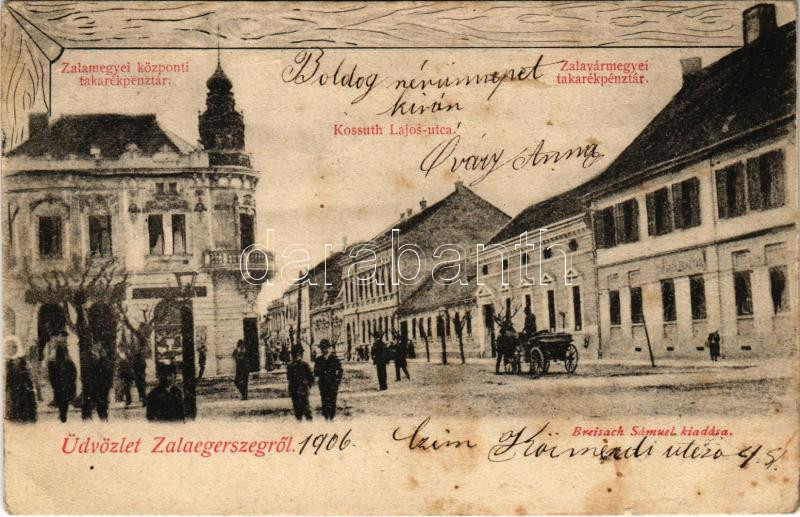 Zalamegyei központi
takarékpénztár.
Boldog névünnepet
kíván
Zalavármegyei
takarékpénztár.
Kossuth Lajos-utca.
Óváry Anna
darabanth
Üdvözlet Zalaegerszegről. 1906
Breisach Sámuel kiadása.
Czim Körmendi utcza